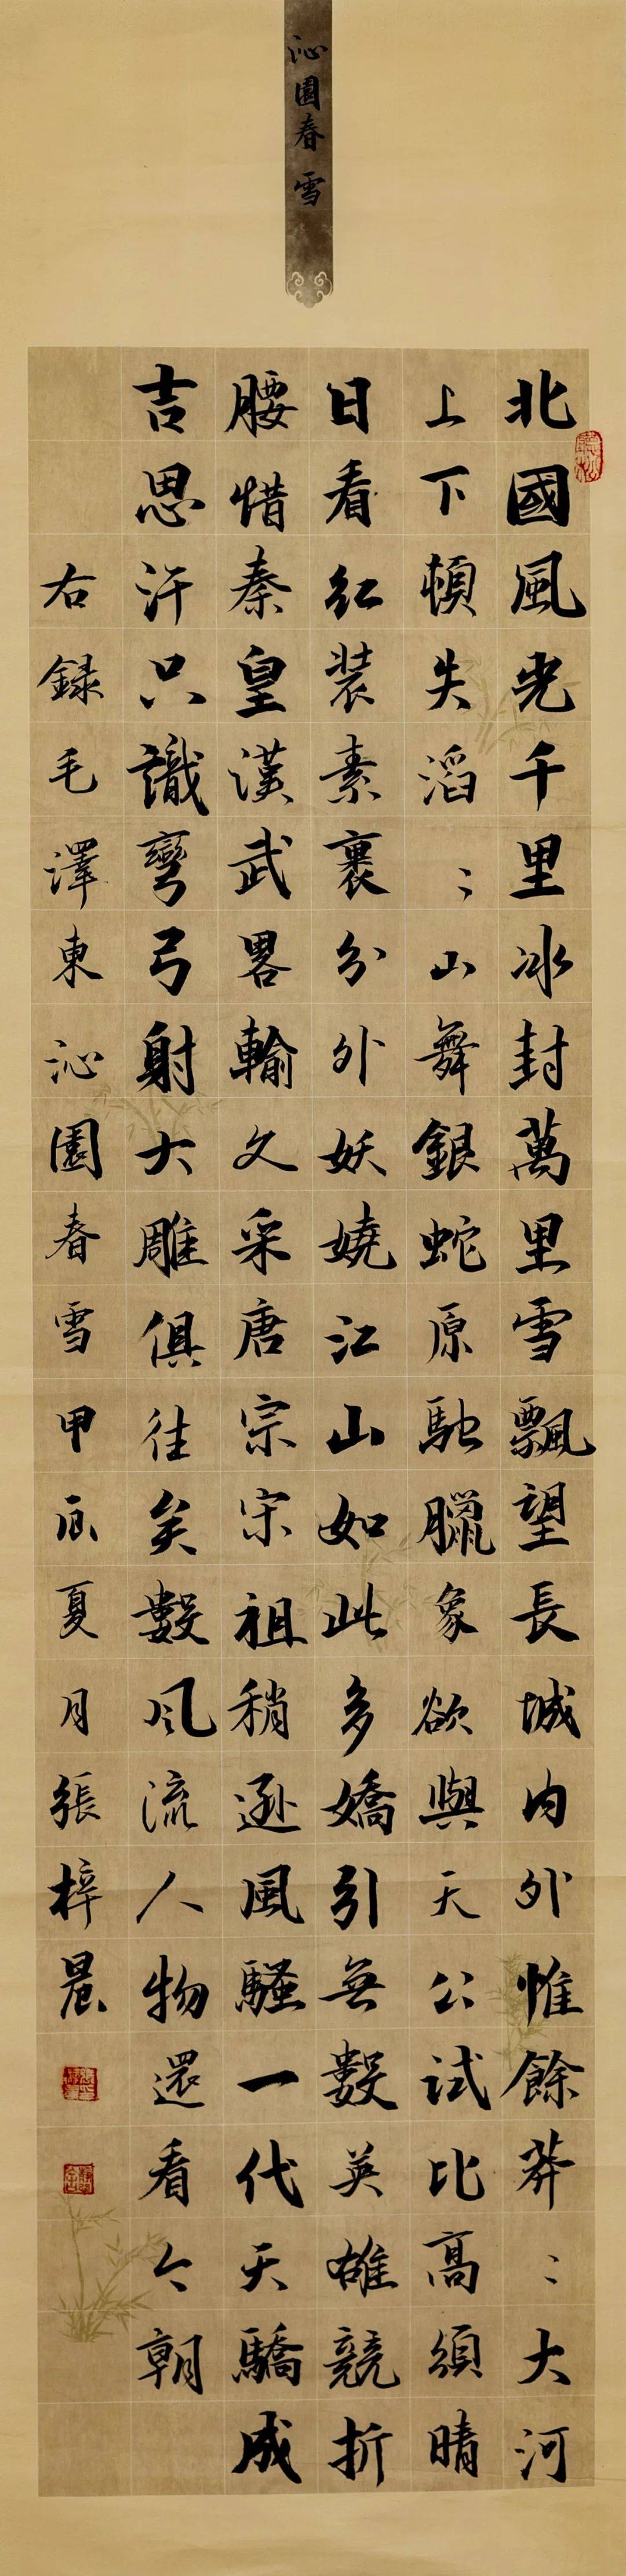 沁園春 雪
北國風光千里冰封萬里雪飄望長城內外惟餘莽〻大河
上下頓失滔〻山舞銀蛇原馳臘象欲與天公試比高須晴
日看紅裝素裹分外妖嬈江山如此多嬌引無數英雄競折
腰惜秦皇漢武畧輸文采唐宗宋祖稍遜風騷一代天驕成
吉思汗只識彎弓射大雕俱往矣數風流人物還看今朝
右録毛澤東沁園春雪甲辰夏月張梓晨